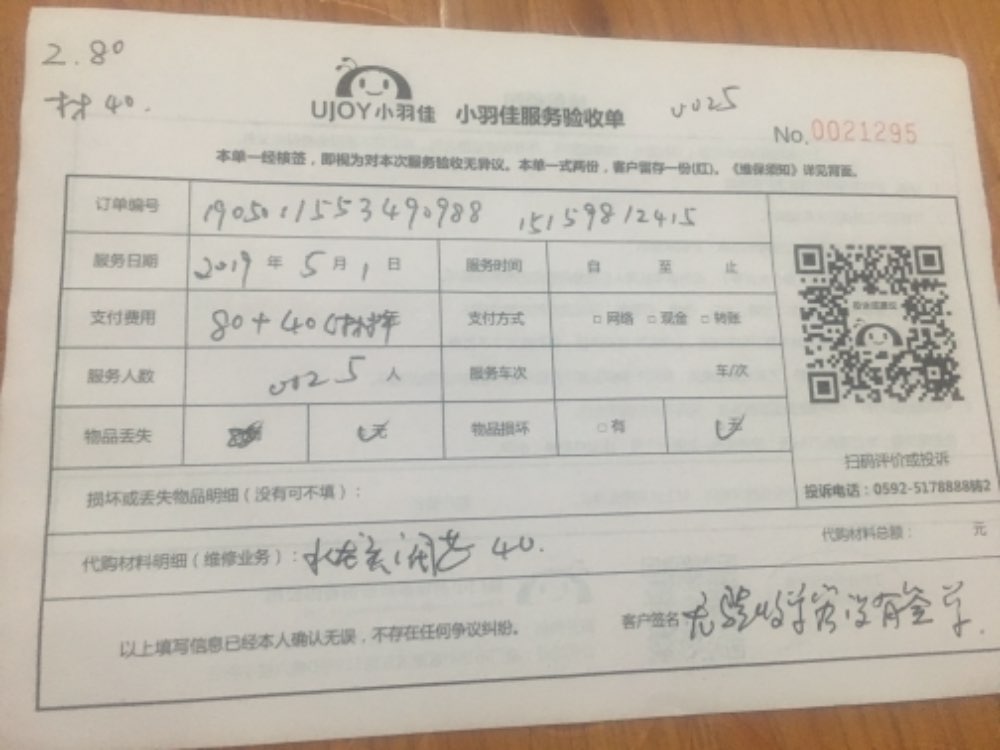 2.80
材 40.
UJOY小羽佳 小羽佳服务验收单 0025
No.0021295
本单一经核签，即视为对本次服务验收无异议。本单一式两份，客户留存一份(红)。《维保须知》详见背面。
订单编号 1905011553490988 15159812415
服务日期 2019年5月1日 服务时间 自 至 止
支付费用 80+40(材料 支付方式 □网络 □现金 □转账
服务人数 0025人 服务车次 车/次
物品丢失 无 物品损坏 □有 无
扫码评价或投诉
投诉电话：0592-5178888转2
损坏或丢失物品明细（没有可不填）：
代购材料总额： 元
代购材料明细（维修业务）： 40.
以上填写信息已经本人确认无误，不存在任何争议纠纷。
客户签名 没有签字.